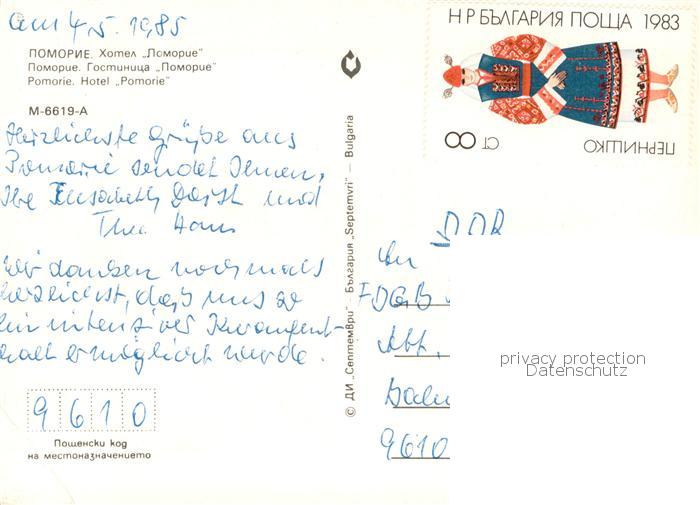 am 4.5.1985
ПОМОРИЕ. Хотел „Поморие"
Поморие. Гостиница „Поморие"
Pomorie. Hotel „Pomorie"
М-6619-А
Herzlichste Grüße aus
Pomorie sendet Ihnen,
Ihre Elisabeth und
Wir danken nochmals
herzlichst, daß uns so
ein intensiver
ermöglicht wurde.
9610
Пощенски код
на местоназначението
© ДИ „Септември" — България „Septemvri" — Bulgaria
НР БЪЛГАРИЯ ПОЩА 1983
ПЕРНИШКО
8 СТ
DDR
An
FDGB
Abt.
9610
privacy protection
Datenschutz